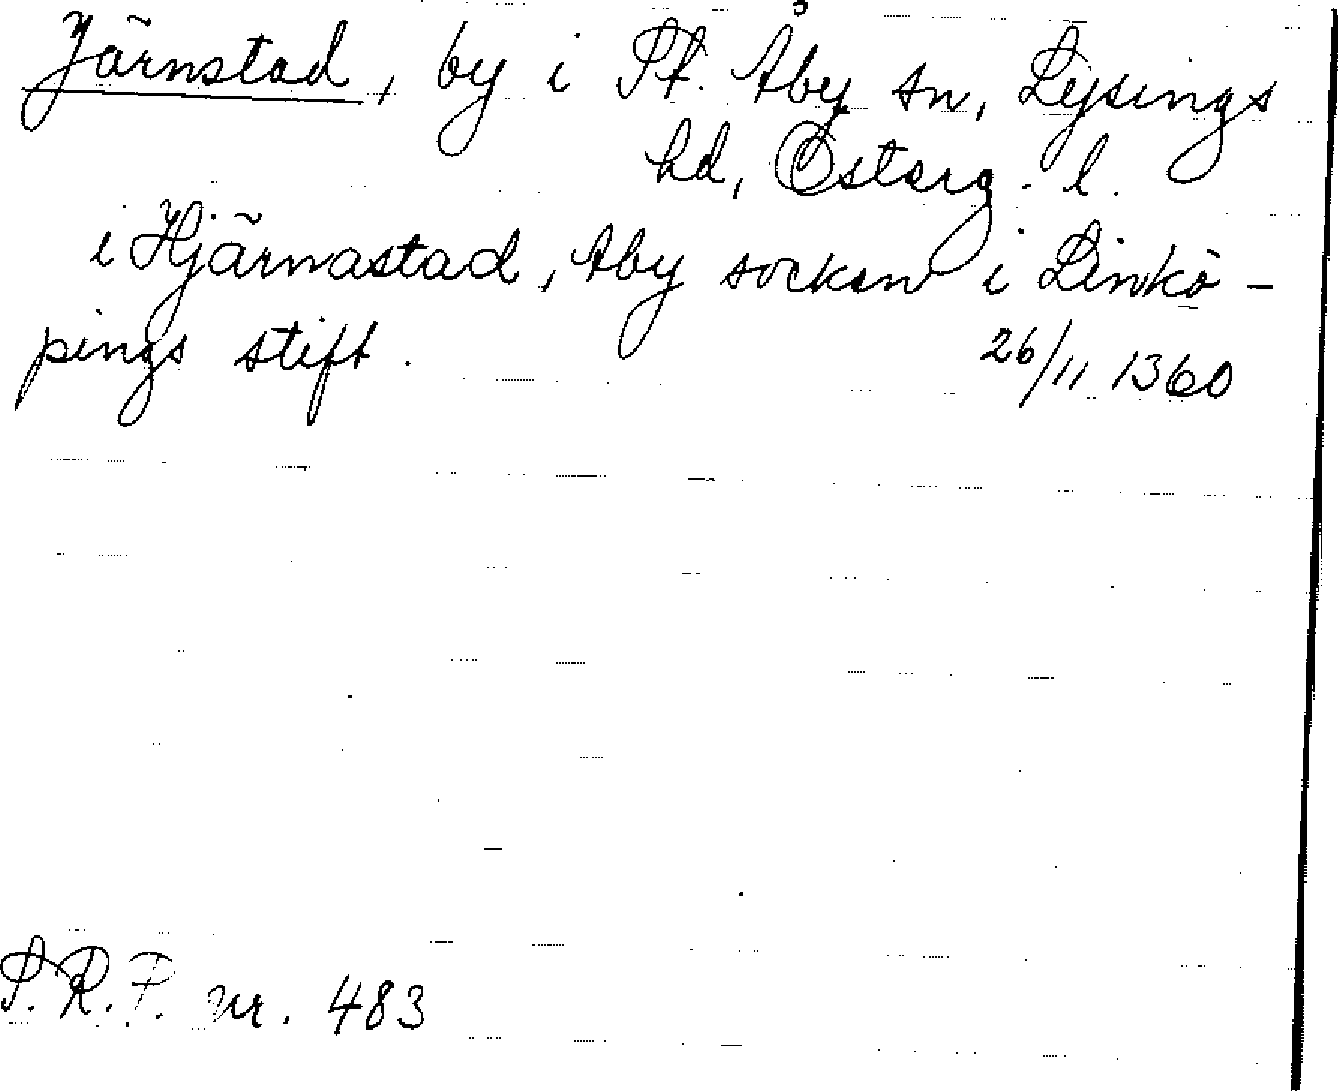 Järnstad, by i St. Åby sn, Lysings
hd, Österg. l.
i Hjärnastad, Åby socken i Linkö-
pings stift. 26/11 1360
S.R.P. nr. 483